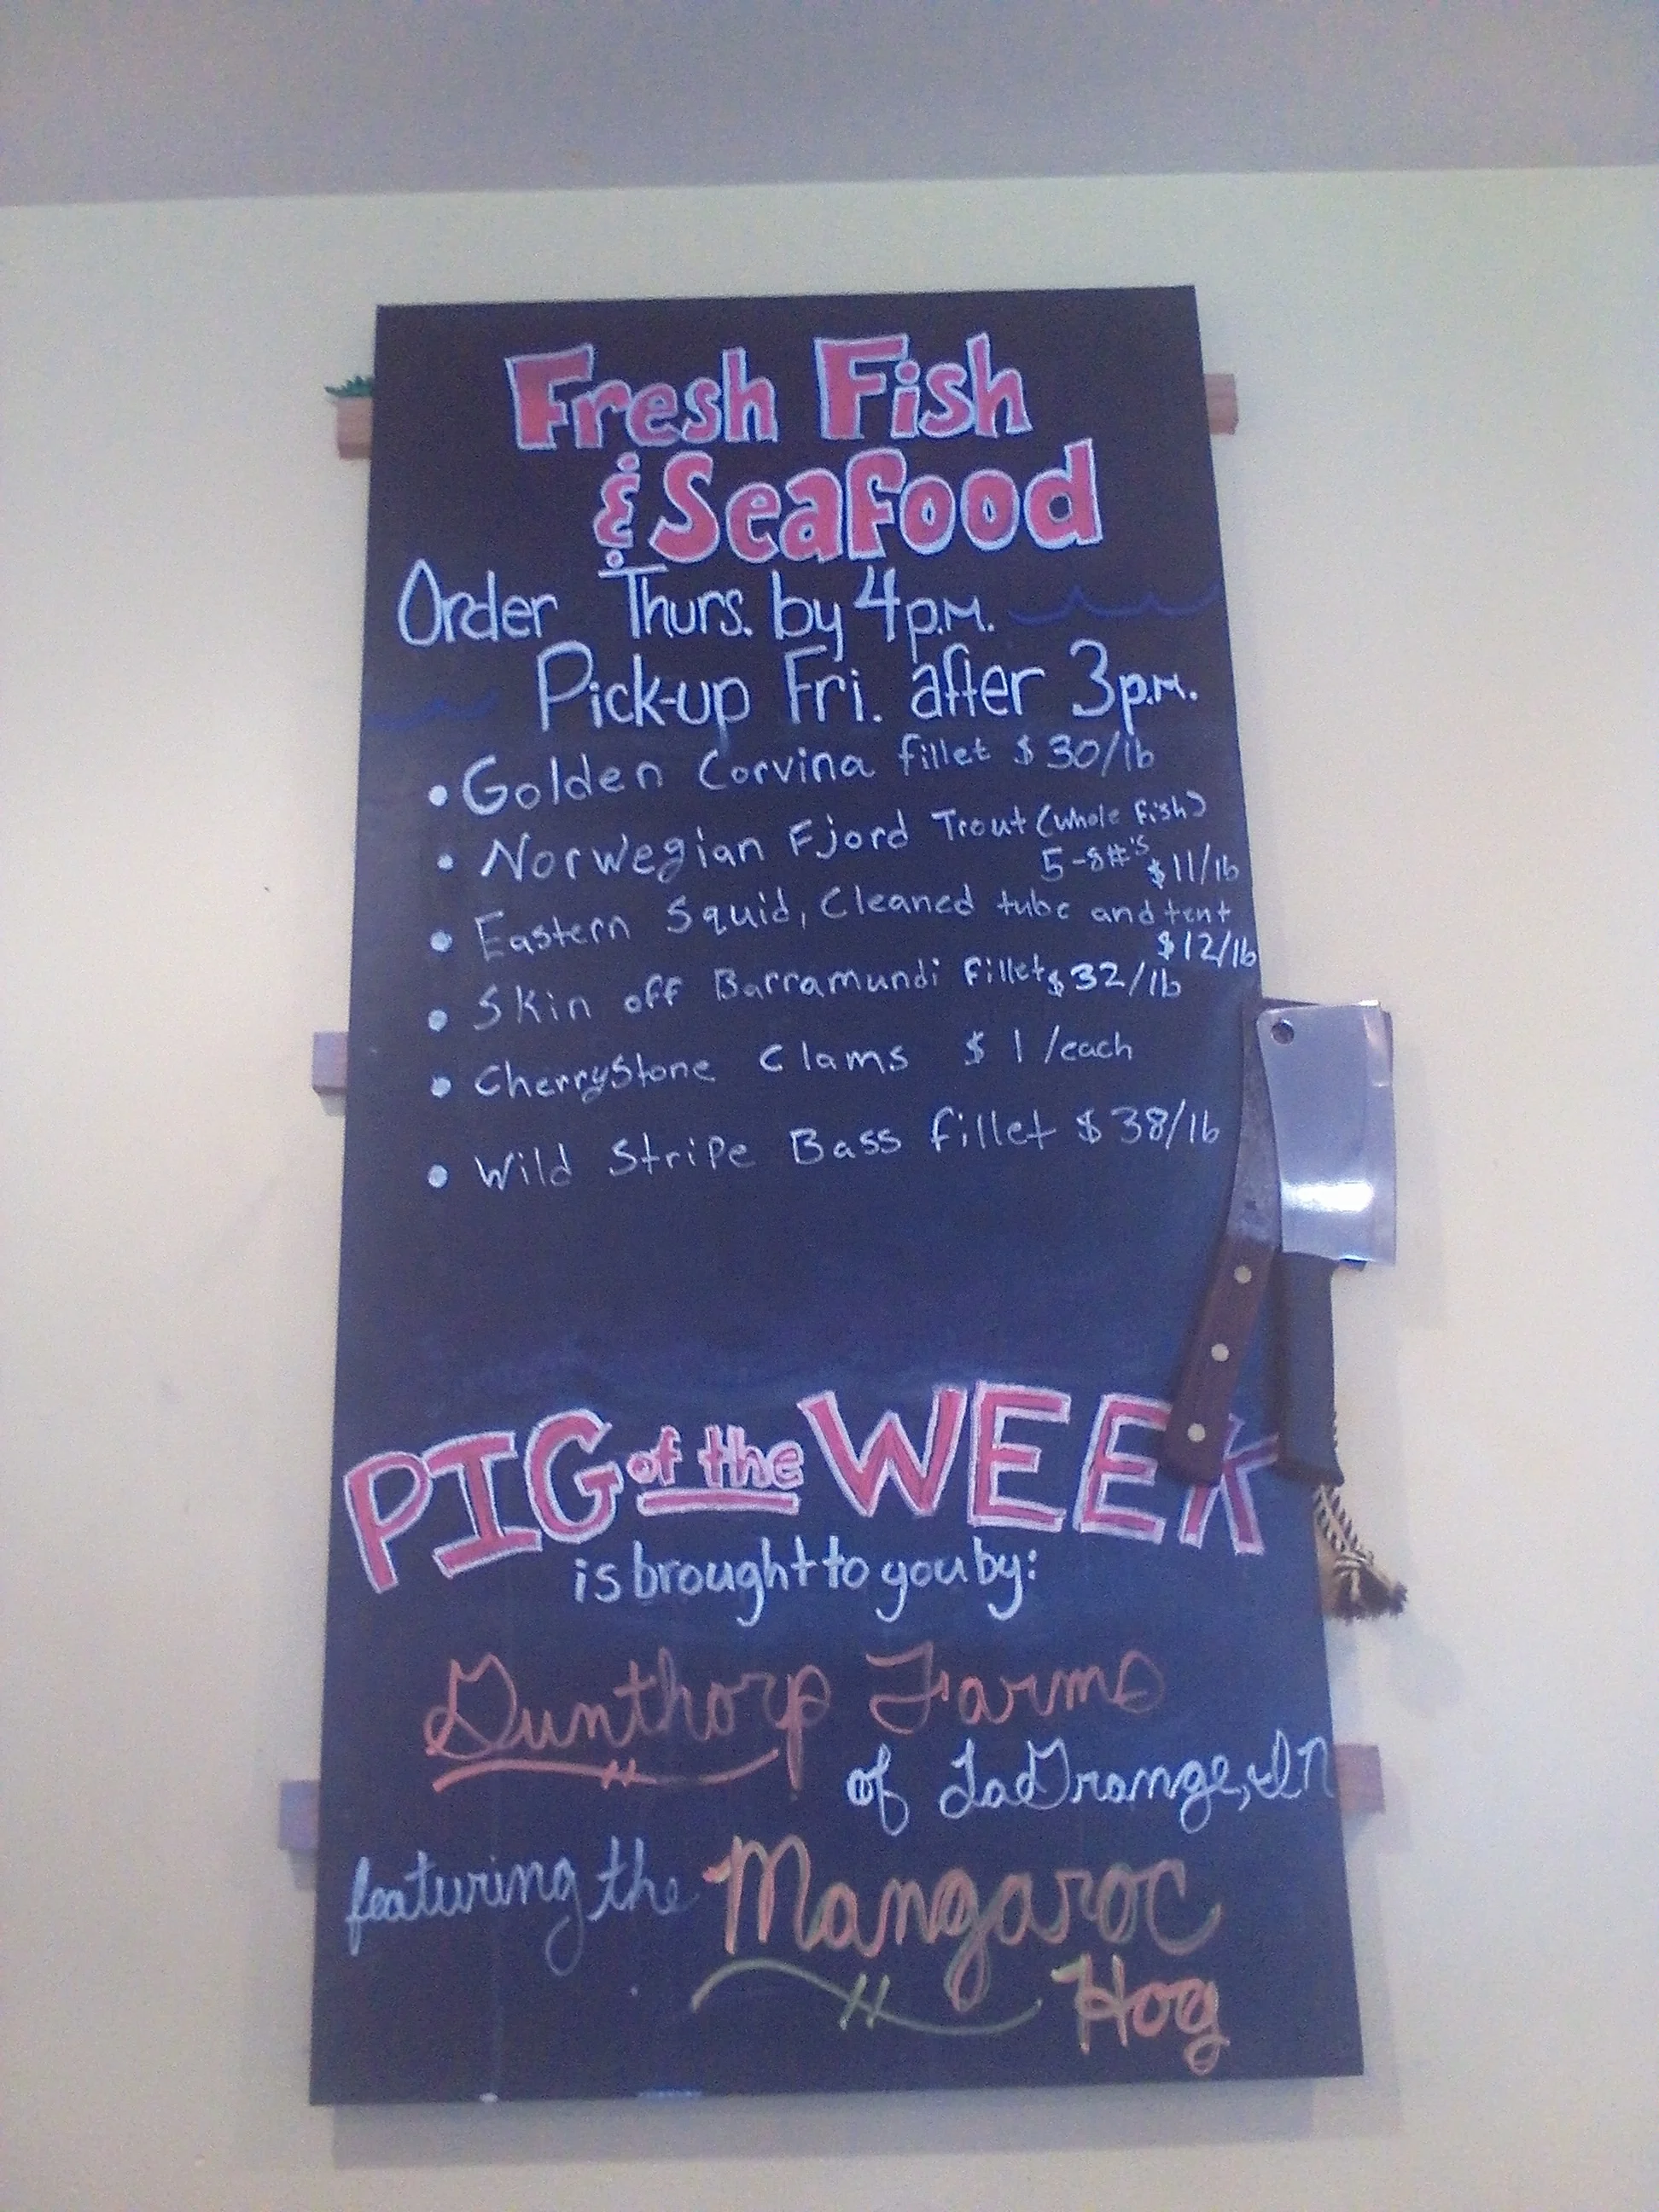 Fresh Fish
& Seafood
Order Thurs. by 4p.m.
Pick-up Fri. after 3p.m.
• Golden Corvina fillet $30/lb
• Norwegian Fjord Trout (whole fish)
5-8#'s $11/lb
• Eastern Squid, Cleaned tube and tent
$12/lb
• Skin off Barramundi Fillet $32/lb
• CherryStone Clams $1/each
• Wild Stripe Bass fillet $38/lb
PIG of the WEEK
is brought to you by:
Gunthorp Farms
of LaGrange, IN
featuring the Mangaroc
Hog